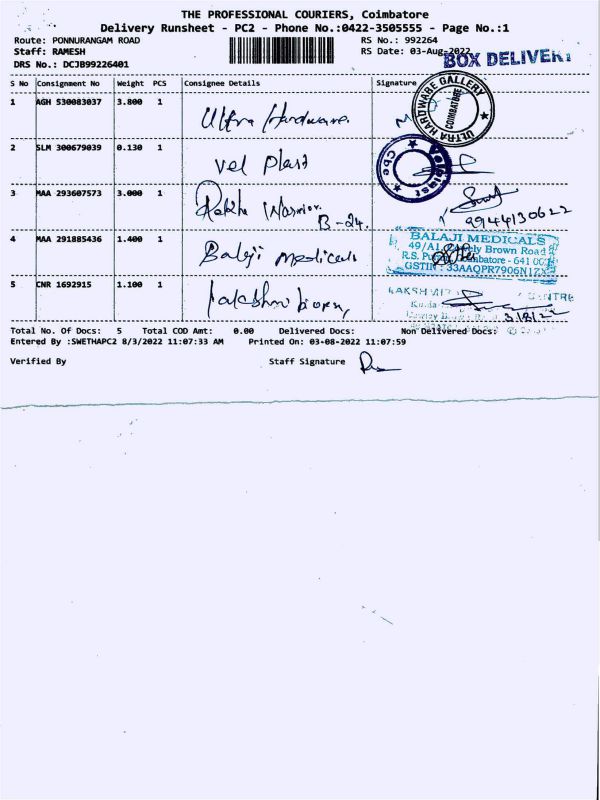 THE PROFESSIONAL COURIERS, Coimbatore
Delivery Runsheet - PC2 - Phone No.:0422-3505555 - Page No.:1
Route: PONNURANGAM ROAD RS No.: 992264
Staff: RAMESH RS Date: 03-Aug-2022
BOX DELIVERY
DRS No.: DCJB99226401
S No Consignment No Weight PCS Consignee Details Signature
1 AGH 530083037 3.800 1 Ultra Hardware
ULTRA HARDWARE GALLERY COIMBATORE
2 SLM 300679039 0.130 1 Vel Plast
Velplast Cbe
3 MAA 293607573 3.000 1 Rekha Warrior
B-24. 9944130622
4 MAA 291885436 1.400 1 Balaji Medicals
BALAJI MEDICALS
49/A1, Brown Road
R.S. Coimbatore - 641 00
GSTIN : 33AAQPR7906N1ZX
5 CNR 1692915 1.100 1 Lakshmi
LAKSHMI CENTRE
3/8/22
Total No. Of Docs: 5 Total COD Amt: 0.00 Delivered Docs: Non Delivered Docs:
Entered By :SWETHAPC2 8/3/2022 11:07:33 AM Printed On: 03-08-2022 11:07:59
Verified By Staff Signature